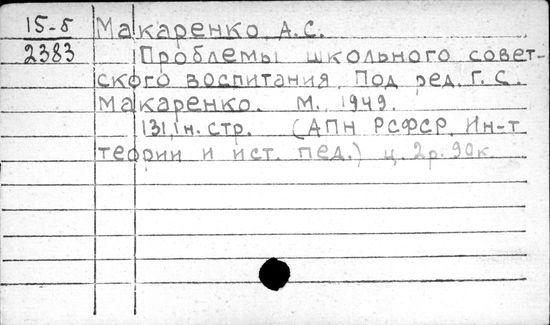 15-5 Макаренко, А.С.
2383 Проблемы школьного совет-
ского воспитания. Под ред. Г.С.
Макаренко. М. 1949.
131,1н. стр. (АПН РСФСР. Ин-т
теории и ист. пед.) ц. 2р. 90к.